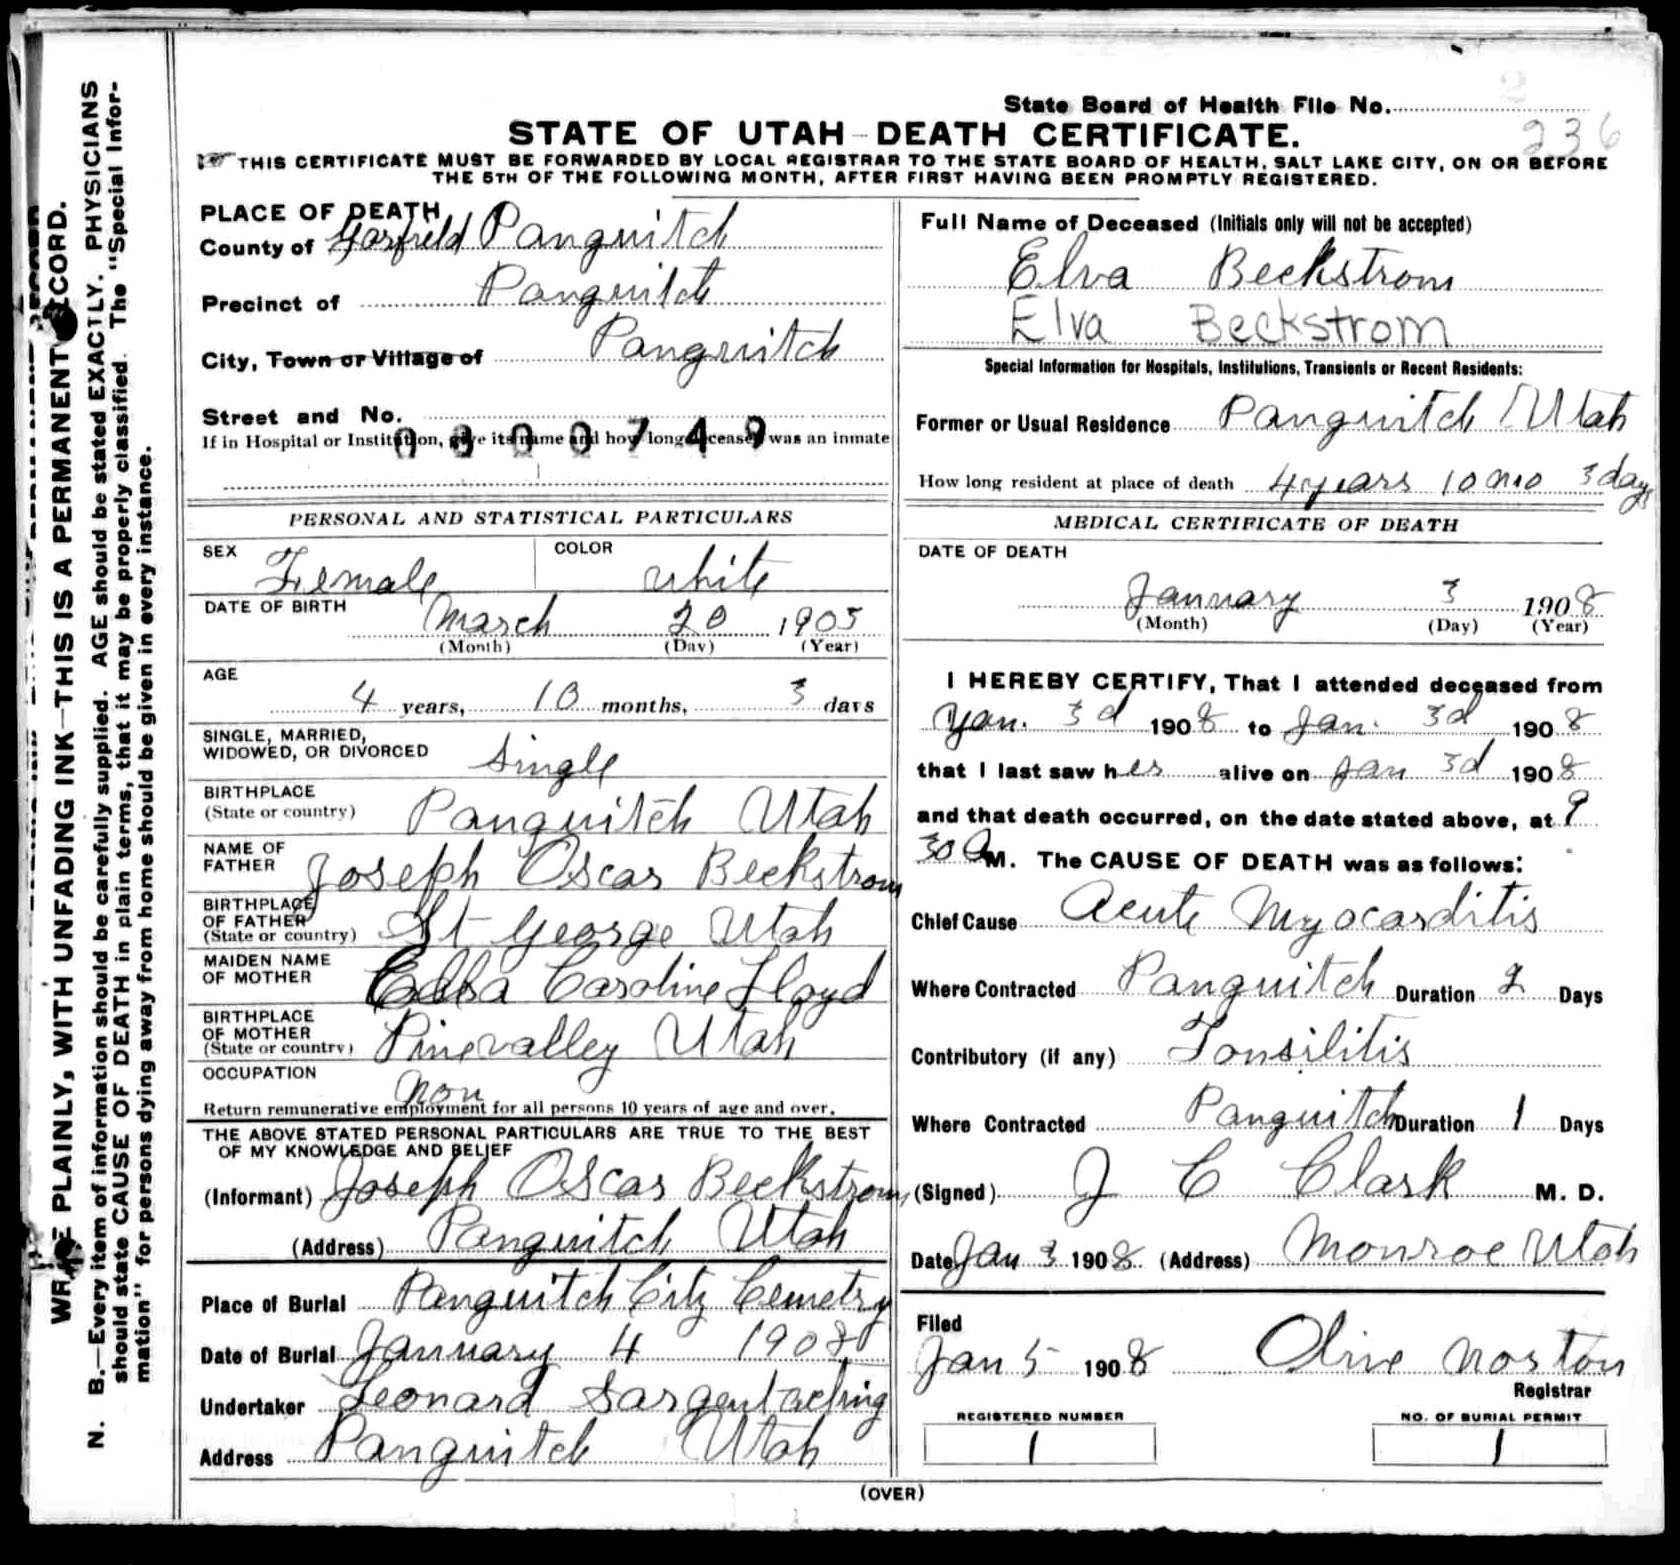 State Board of Health File No.
236
STATE OF UTAH—DEATH CERTIFICATE.
THIS CERTIFICATE MUST BE FORWARDED BY LOCAL REGISTRAR TO THE STATE BOARD OF HEALTH, SALT LAKE CITY, ON OR BEFORE
THE 5TH OF THE FOLLOWING MONTH, AFTER FIRST HAVING BEEN PROMPTLY REGISTERED.
WRITE PLAINLY, WITH UNFADING INK—THIS IS A PERMANENT RECORD.
N. B.—Every item of information should be carefully supplied. AGE should be stated EXACTLY. PHYSICIANS
should state CAUSE OF DEATH in plain terms, that it may be properly classified. The "Special Infor-
mation" for persons dying away from home should be given in every instance.
PLACE OF DEATH
County of Garfield Panguitch
Precinct of Panguitch
City, Town or Village of Panguitch
Street and No.
If in Hospital or Institution, give its name and how long deceased was an inmate
0000749
PERSONAL AND STATISTICAL PARTICULARS
SEX Female COLOR white
DATE OF BIRTH March 20 1903
(Month) (Day) (Year)
AGE
4 years, 10 months, 3 days
SINGLE, MARRIED,
WIDOWED, OR DIVORCED Single
BIRTHPLACE
(State or country) Panguitch Utah
NAME OF
FATHER Joseph Oscar Beckstrom
BIRTHPLACE
OF FATHER
(State or country) St George Utah
MAIDEN NAME
OF MOTHER Caroline Lloyd
BIRTHPLACE
OF MOTHER
(State or country) Pinevalley Utah
OCCUPATION
non
Return remunerative employment for all persons 10 years of age and over.
THE ABOVE STATED PERSONAL PARTICULARS ARE TRUE TO THE BEST
OF MY KNOWLEDGE AND BELIEF
(Informant) Joseph Oscar Beckstrom
(Address) Panguitch Utah
Place of Burial Panguitch City Cemetry
Date of Burial January 4 1908
Undertaker Leonard Sargent acting
Address Panguitch Utah
Full Name of Deceased (Initials only will not be accepted)
Elva Beckstrom
Elva Beckstrom
Special Information for Hospitals, Institutions, Transients or Recent Residents:
Former or Usual Residence Panguitch Utah
How long resident at place of death 4 years 10 mo 3 days
MEDICAL CERTIFICATE OF DEATH
DATE OF DEATH
January 3 1908
(Month) (Day) (Year)
I HEREBY CERTIFY, That I attended deceased from
Jan. 3d 1908 to Jan. 3d 1908
that I last saw her alive on Jan 3d 1908
and that death occurred, on the date stated above, at 9
30 A M. The CAUSE OF DEATH was as follows:
Chief Cause Acute Myocarditis
Where Contracted Panguitch Duration 2 Days
Contributory (if any) Tonsilitis
Where Contracted Panguitch Duration 1 Days
(Signed) J C Clark M. D.
Date Jan 3 1908 (Address) Monroe Utah
Filed
Jan 5 1908 Olive Norton
Registrar
REGISTERED NUMBER
1
NO. OF BURIAL PERMIT
1
(OVER)